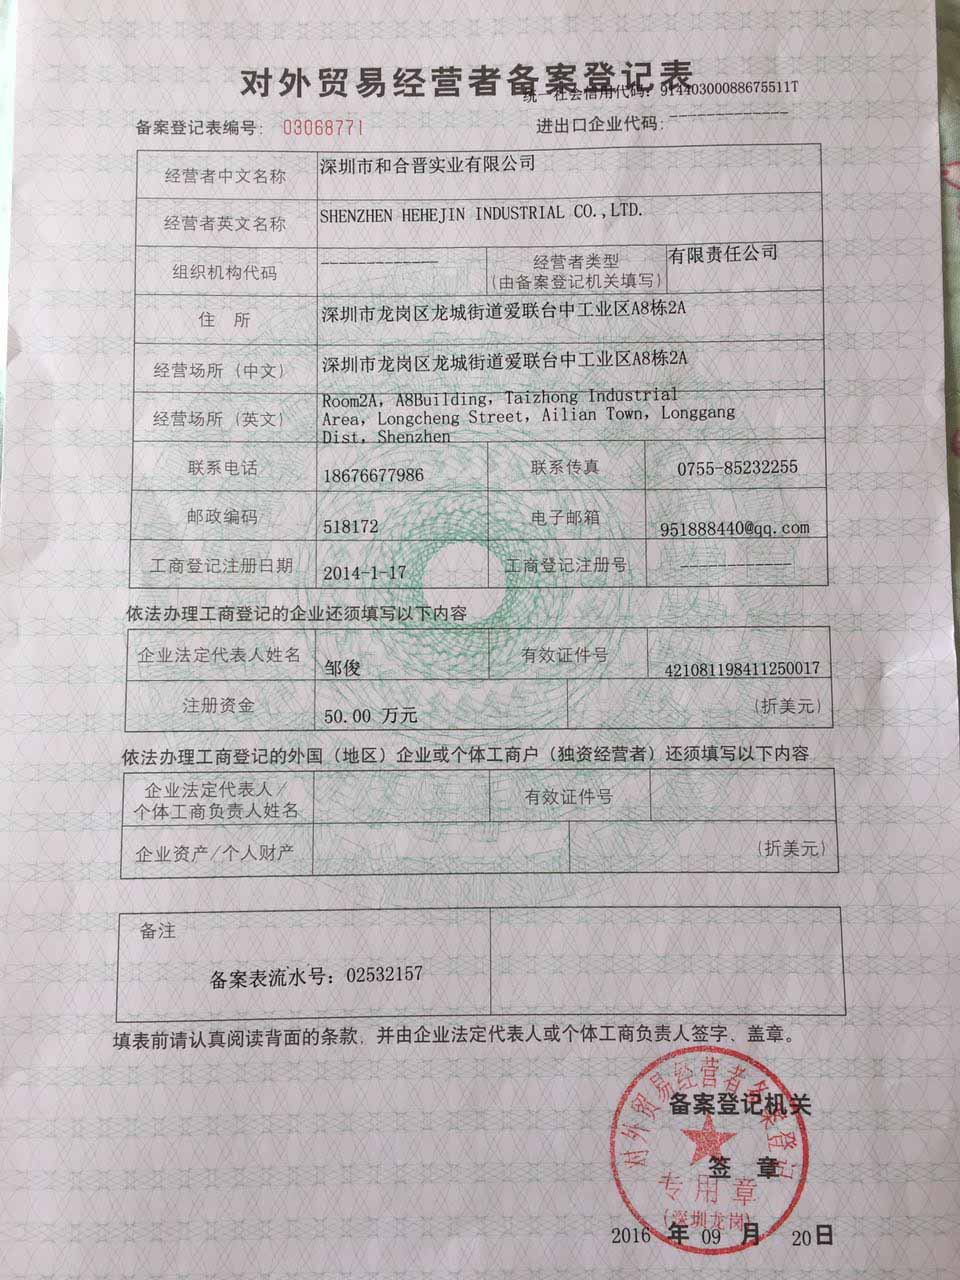 对外贸易经营者备案登记表
统一社会信用代码：91440300088675511T
备案登记表编号： 03068771
进出口企业代码：-------------
经营者中文名称 深圳市和合晋实业有限公司
经营者英文名称 SHENZHEN HEHEJIN INDUSTRIAL CO.,LTD.
组织机构代码 ------------- 经营者类型 有限责任公司
(由备案登记机关填写)
住 所 深圳市龙岗区龙城街道爱联台中工业区A8栋2A
经营场所（中文） 深圳市龙岗区龙城街道爱联台中工业区A8栋2A
Room2A, A8Building, Taizhong Industrial
经营场所（英文） Area, Longcheng Street, Ailian Town, Longgang
Dist, Shenzhen
联系电话 18676677986 联系传真 0755-85232255
邮政编码 518172 电子邮箱 951888440@qq.com
工商登记注册日期 2014-1-17 工商登记注册号 -------------
依法办理工商登记的企业还须填写以下内容
企业法定代表人姓名 邹俊 有效证件号 421081198411250017
注册资金 50.00 万元 (折美元)
依法办理工商登记的外国（地区）企业或个体工商户（独资经营者）还须填写以下内容
企业法定代表人/
个体工商负责人姓名 有效证件号
企业资产/个人财产 (折美元)
备注
备案表流水号：02532157
填表前请认真阅读背面的条款，并由企业法定代表人或个体工商负责人签字、盖章。
对外贸易经营者备案登记
备案登记机关
签 章
专用章
(深圳龙岗)
2016 年 09 月 20 日